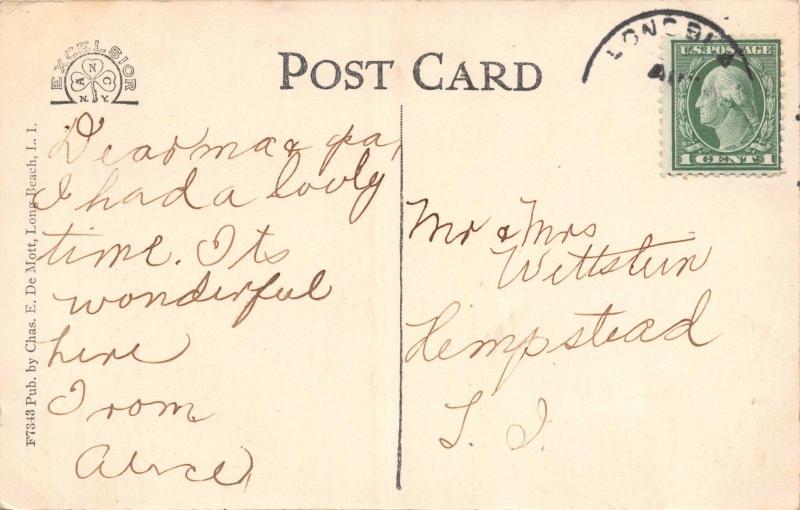 EXCELSIOR
A N C
N.Y.
POST CARD
LONG
U.S. POSTAGE
1 CENTS 1
F7343 Pub. by Chas. E. De Mott, Long Beach, L. I.
Dear ma & pa,
I had a lovly
time. Its
wonderful
here
From
Alice
Mr & Mrs
Wittstein
Hempstead
L. I.